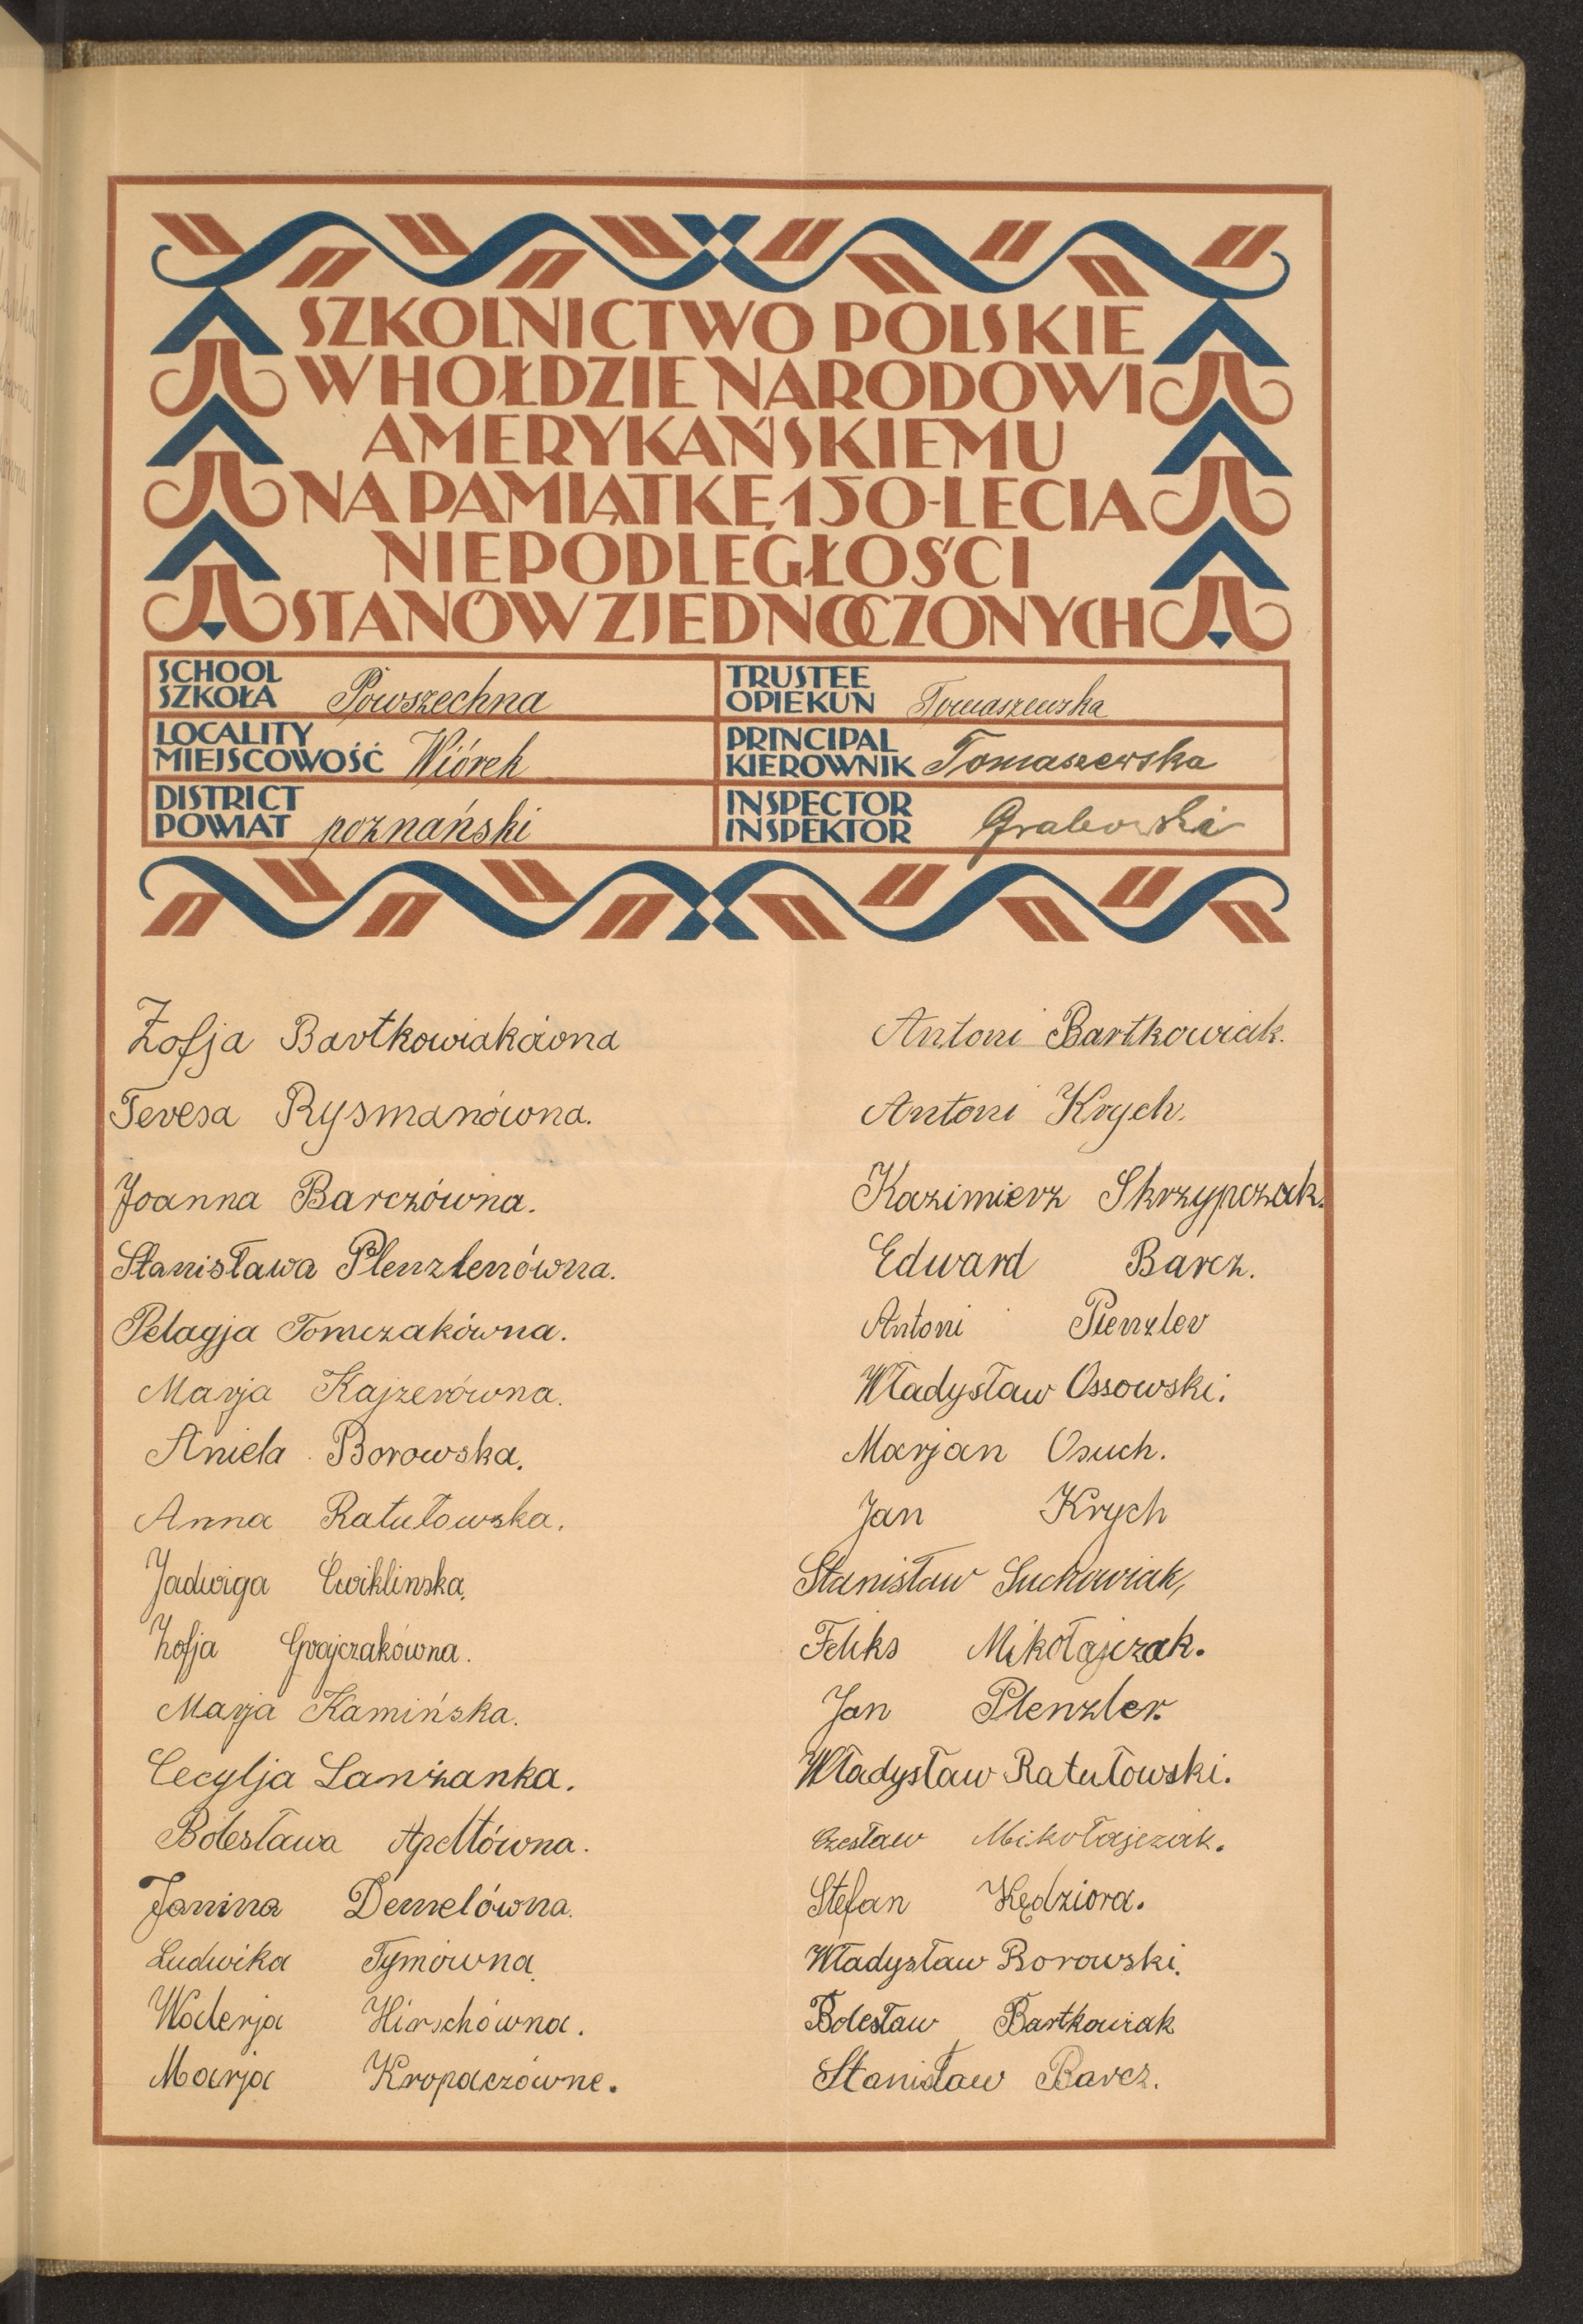 SZKOLNICTWO POLSKIE
W HOŁDZIE NARODOWI
AMERYKAŃSKIEMU
NA PAMIĄTKĘ 150-LECIA
NIEPODLEGŁOŚCI
STANÓW ZJEDNOCZONYCH
SCHOOL
SZKOŁA Powszechna
LOCALITY
MIEJSCOWOŚĆ Wiórek
DISTRICT
POWIAT poznański
TRUSTEE
OPIEKUN Tomaszewska
PRINCIPAL
KIEROWNIK Tomaszewska
INSPECTOR
INSPEKTOR Grabowski
Zofja Bartkowiakówna
Teresa Rysmanówna.
Joanna Barczówna.
Stanisława Plenzlerówna.
Pelagja Tomczakówna.
Marja Kajzerówna.
Aniela Borowska.
Anna Ratułowska.
Jadwiga Ćwiklinska.
Zofja Grajczakówna.
Marja Kamińska.
Cecylja Lanżanka.
Bolesława Apeltówna.
Janina Demelówna.
Ludwika Tymówna.
Walerja Hirschówna.
Marja Kropaczówne.
Antoni Bartkowiak.
Antoni Krych.
Kazimierz Skrzypczak.
Edward Barcz.
Antoni Plenzler
Władysław Ossowski.
Marjan Osuch.
Jan Krych
Stanisław Suchowiak,
Feliks Mikołajczak.
Jan Plenzler.
Władysław Ratułowski.
Czesław Mikołajczak.
Stefan Kędziora.
Władysław Borowski.
Bolesław Bartkowiak
Stanisław Barcz.